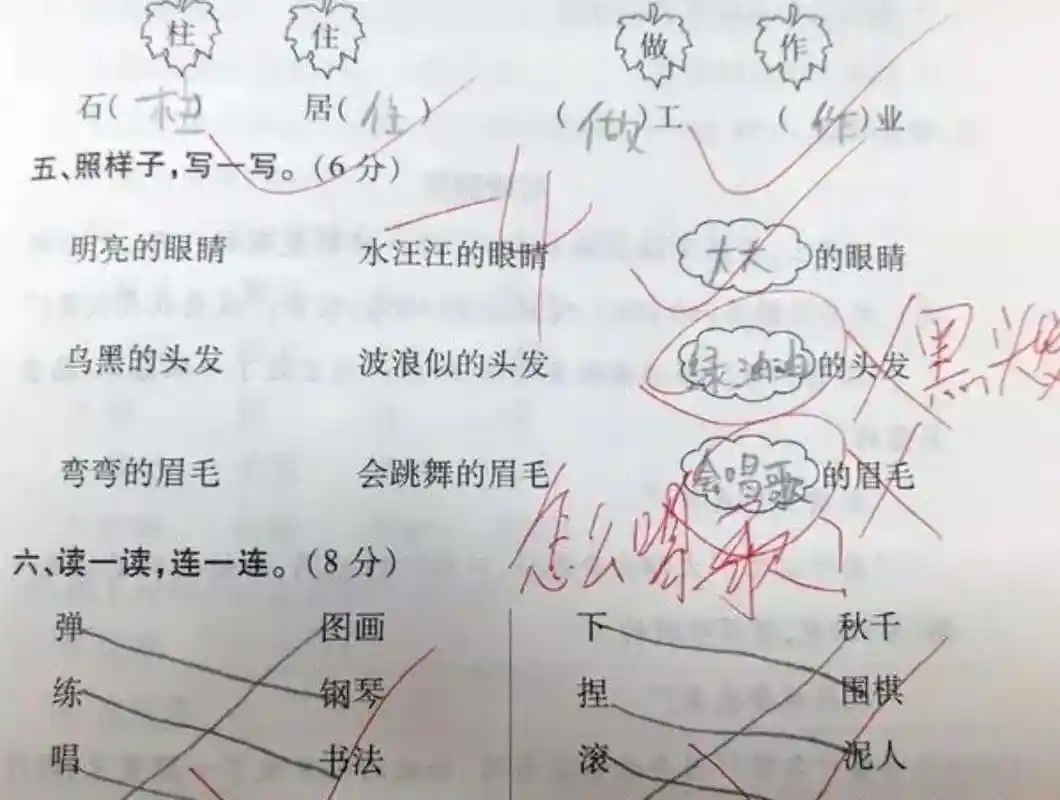 柱 住 做 作
石(柱) 居(住) (做)工 (作)业
五、照样子,写一写。(6分)
明亮的眼睛 水汪汪的眼睛 大大的眼睛
乌黑的头发 波浪似的头发 绿油油的头发 黑
弯弯的眉毛 会跳舞的眉毛 会唱歌的眉毛
怎么唱歌
六、读一读,连一连。(8分)
弹 图画 下 秋千
练 钢琴 捏 围棋
唱 书法 滚 泥人